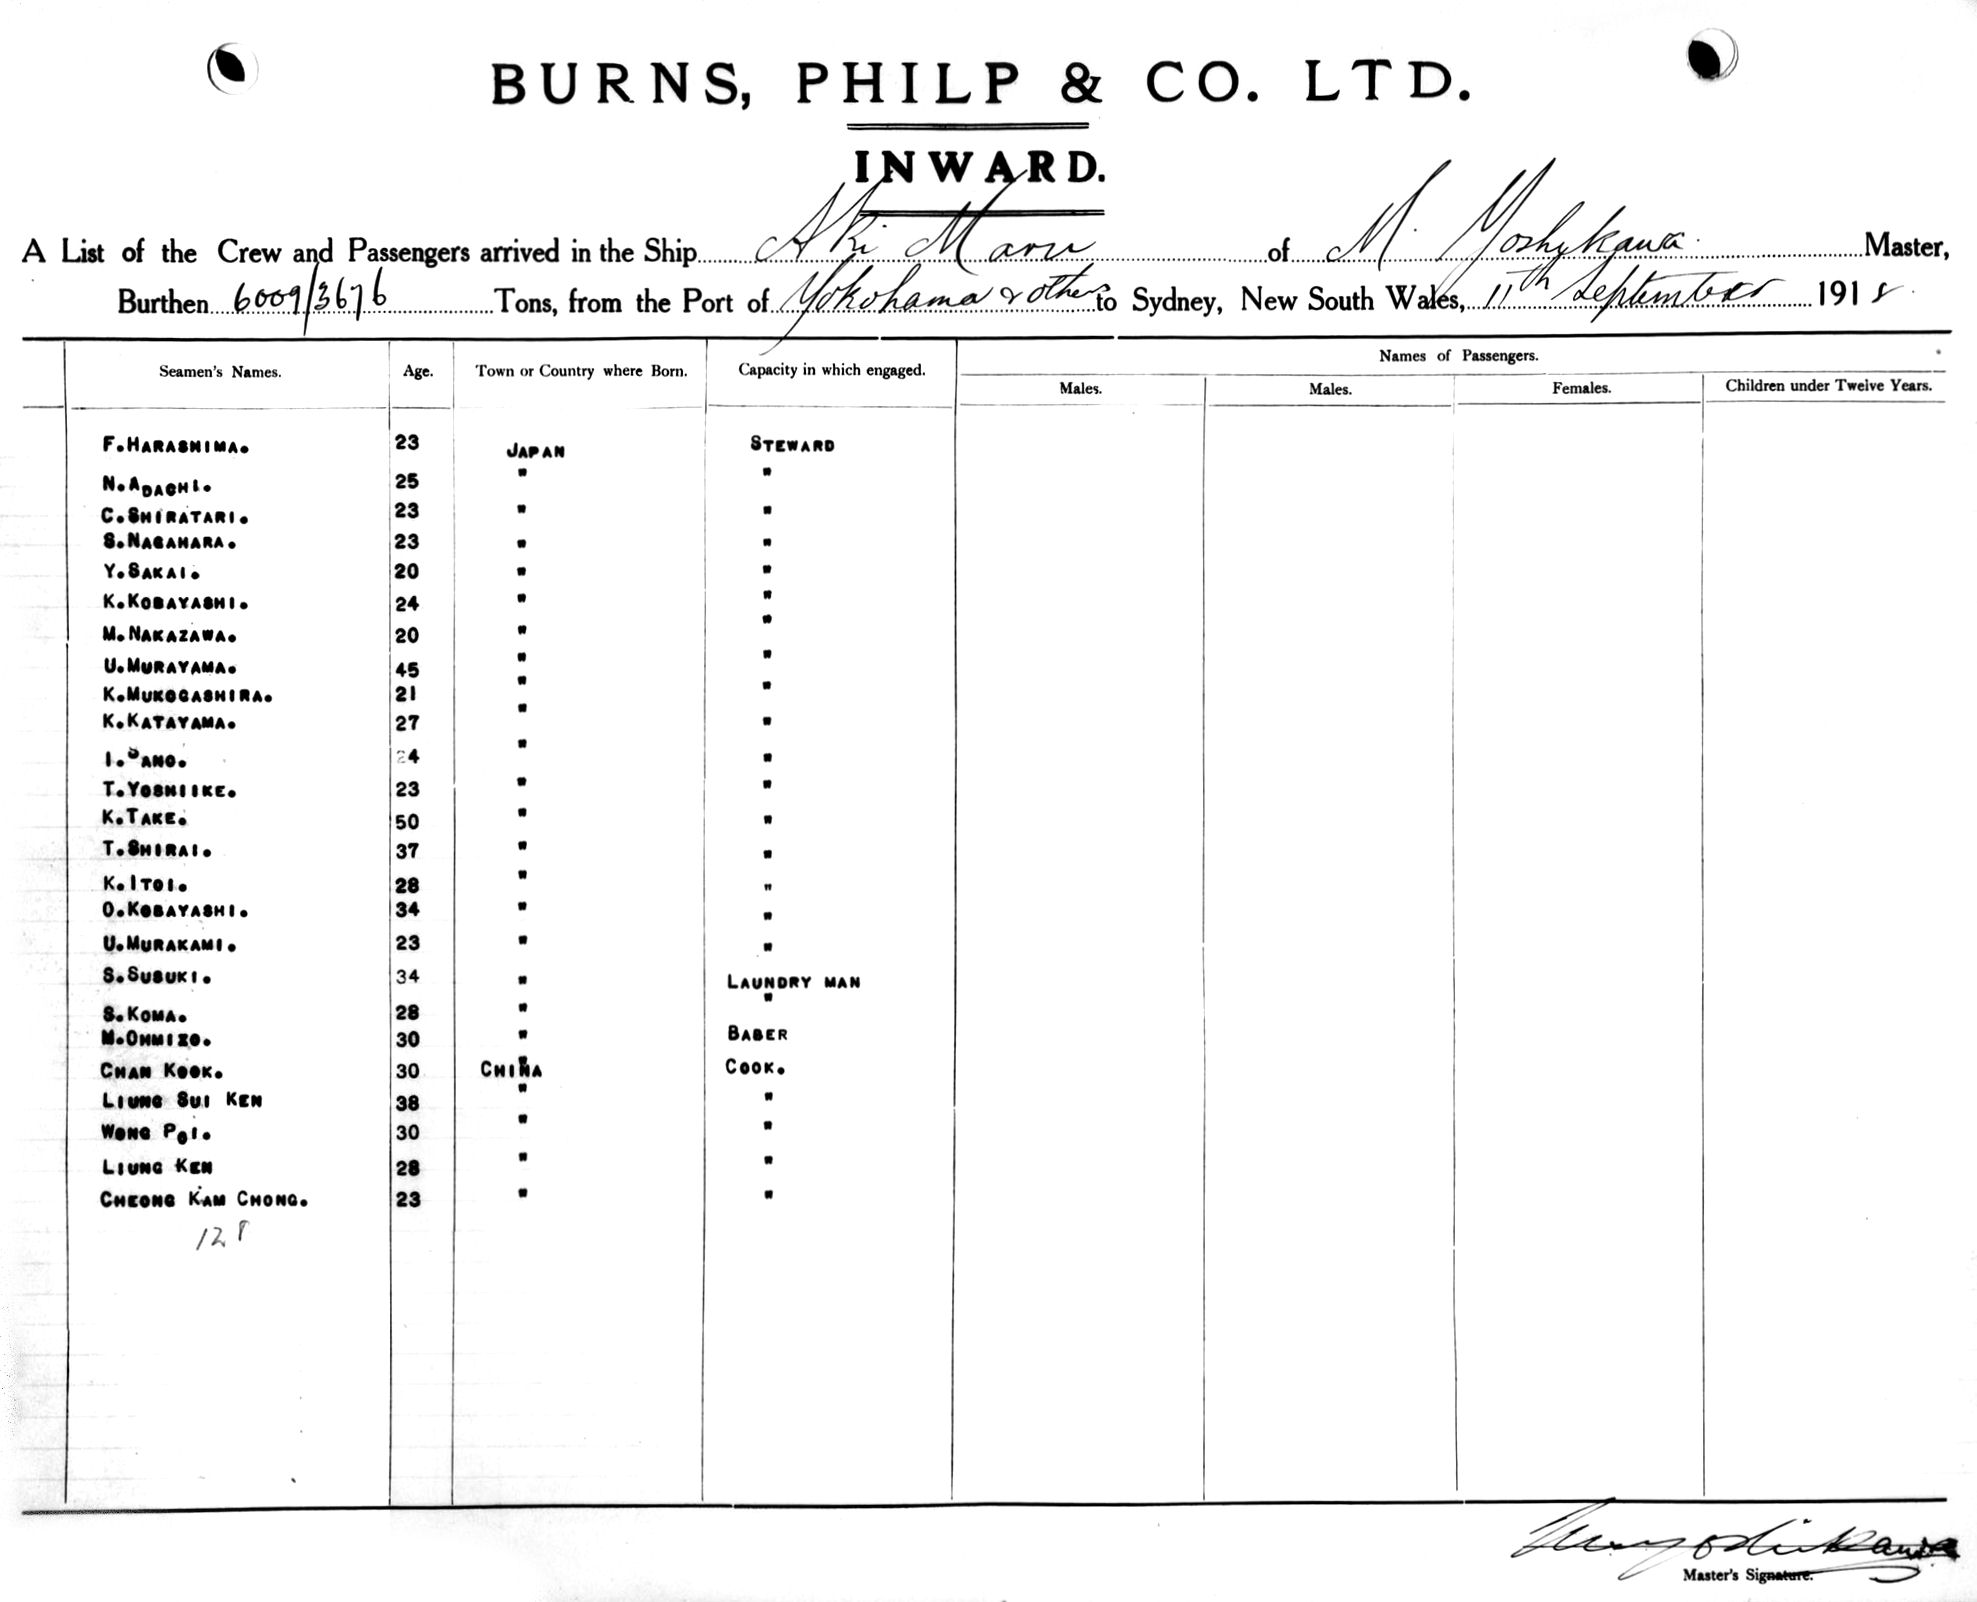 BURNS, PHILP & CO. LTD.
INWARD.
A List of the Crew and Passengers arrived in the Ship Aki Maru of M. Yoshikawa Master,
Burthen 6009/3676 Tons, from the Port of Yokohama & others to Sydney, New South Wales, 11th September 1918
Names of Passengers.
Seamen's Names. Age. Town or Country where Born. Capacity in which engaged. Males. Males. Females. Children under Twelve Years.
F.HARASHIMA. 23 JAPAN STEWARD
N.ADACHI. 25 " "
C.SHIRATARI. 23 " "
S.NAGAHARA. 23 " "
Y.SAKAI. 20 " "
K.KOBAYASHI. 24 " "
M.NAKAZAWA. 20 " "
U.MURAYAMA. 45 " "
K.MUKOGASHIRA. 21 " "
K.KATAYAMA. 27 " "
I.SANO. 24 " "
T.YOSHIIKE. 23 " "
K.TAKE. 50 " "
T.SHIRAI. 37 " "
K.ITOI. 28 " "
O.KOBAYASHI. 34 " "
U.MURAKAMI. 23 " "
S.SUSUKI. 34 " LAUNDRY MAN
S.KOMA. 28 " "
M.OHMIZO. 30 " BABER
CHAN KOOK. 30 CHINA COOK.
LIUNG SUI KEN 38 " "
WONG POI. 30 " "
LIUNG KEN 28 " "
CHEONG KAM CHONG. 23 " "
128
Master's Signature.